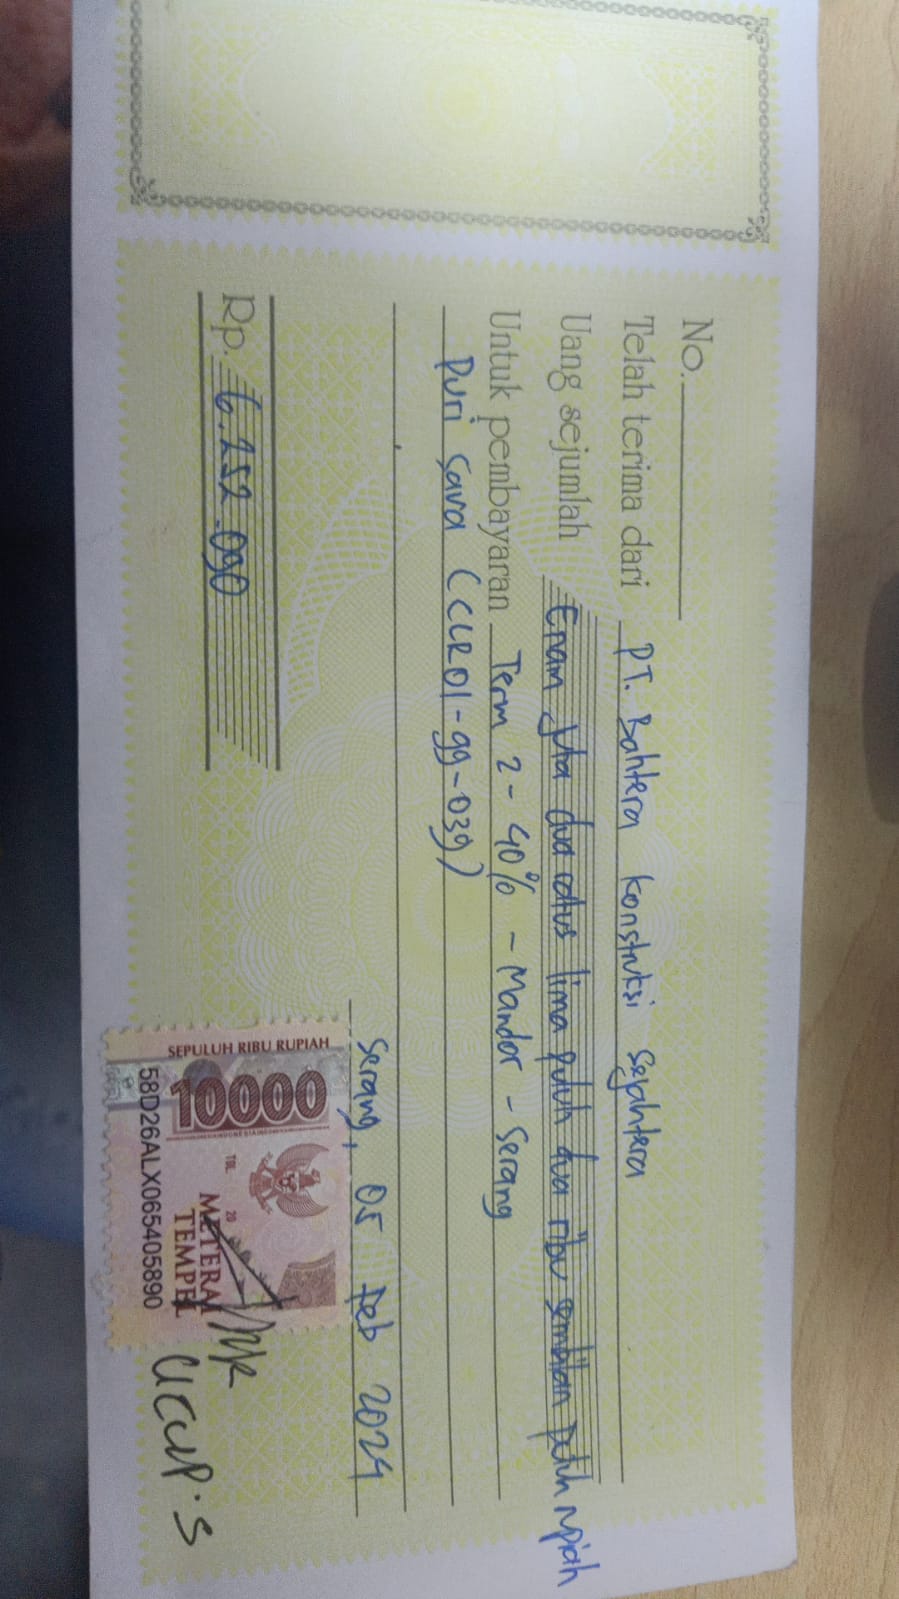 No.
Telah terima dari PT. Bahtera konstruksi Sejahtera
Uang sejumlah Enam juta dua ratus lima puluh dua ribu sembilan puluh rupiah
Untuk pembayaran Term 2 - 40% - Mandor - Serang
Puri Sava (CLR01-99-039)
Serang, 05 Feb 2024
Rp. 6.252.090
SEPULUH RIBU RUPIAH
10000
TGL. 20
METERAI
TEMPEL
58D26ALX065405890
UCUP.S